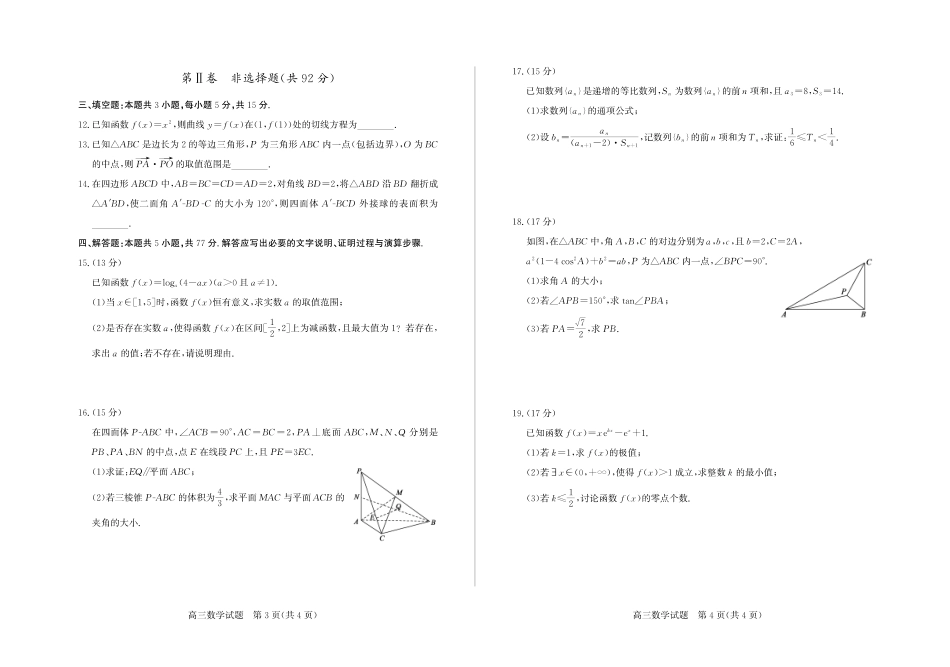 第Ⅱ卷 非选择题(共92分)
三、填空题:本题共3小题,每小题5分,共15分.
12.已知函数f(x)=x²,则曲线y=f(x)在(1,f(1))处的切线方程为________.
13.已知△ABC是边长为2的等边三角形,P为三角形ABC内一点(包括边界),O为BC
的中点,则PA·PO的取值范围是________.
14.在四边形ABCD中,AB=BC=CD=AD=2,对角线BD=2,将△ABD沿BD翻折成
△A′BD,使二面角A′-BD-C的大小为120°,则四面体A′-BCD外接球的表面积为
________.
四、解答题:本题共5小题,共77分.解答应写出必要的文字说明、证明过程与演算步骤.
15.(13分)
已知函数f(x)=logₐ(4-ax)(a>0且a≠1).
(1)当x∈[1,5]时,函数f(x)恒有意义,求实数a的取值范围;
(2)是否存在实数a,使得函数f(x)在区间[-1/2,2]上为减函数,且最大值为1?若存在,
求出a的值;若不存在,请说明理由.
16.(15分)
在四面体P-ABC中,∠ACB=90°,AC=BC=2,PA⊥底面ABC,M、N、Q分别是
PB、PA、BN的中点,点E在线段PC上,且PE=3EC.
(1)求证:EQ//平面ABC;
(2)若三棱锥P-ABC的体积为4/3,求平面MAC与平面ACB的
夹角的大小.
P
M
N
Q
E
A
B
C
高三数学试题 第3页(共4页)
17.(15分)
已知数列{aₙ}是递增的等比数列,Sₙ为数列{aₙ}的前n项和,且a₃=8,S₃=14.
(1)求数列{aₙ}的通项公式;
(2)设bₙ=aₙ/((aₙ₊₁-2)·Sₙ₊₁),记数列{bₙ}的前n项和为Tₙ,求证:1/6≤Tₙ<1/4.
18.(17分)
如图,在△ABC中,角A,B,C的对边分别为a,b,c,且b=2,C=2A,
a²(1-4cos²A)+b²=ab,P为△ABC内一点,∠BPC=90°.
(1)求角A的大小;
(2)若∠APB=150°,求tan∠PBA;
(3)若PA=√7/2,求PB.
C
P
A
B
19.(17分)
已知函数f(x)=xeᵏˣ-eˣ+1.
(1)若k=1,求f(x)的极值;
(2)若∃x∈(0,+∞),使得f(x)>1成立,求整数k的最小值;
(3)若k≤1/2,讨论函数f(x)的零点个数.
高三数学试题 第4页(共4页)